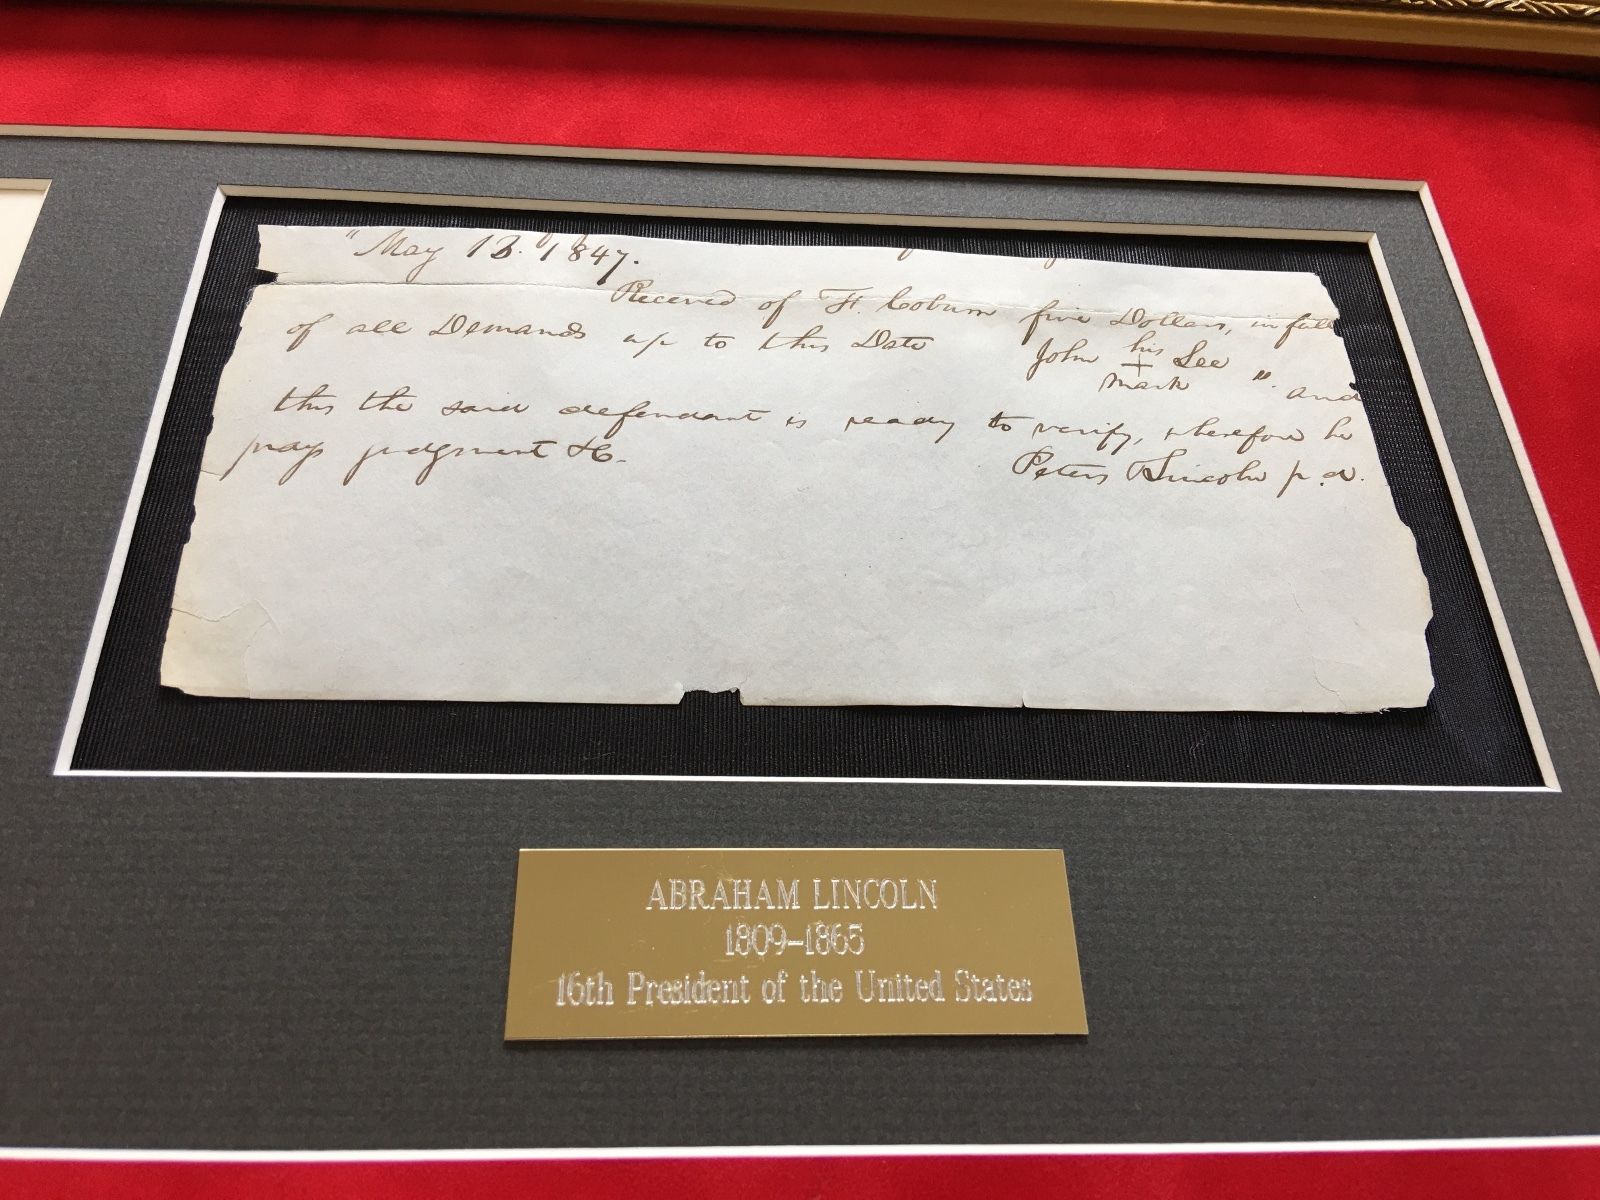 "May 13. 1847.
Received of F. Coburn five Dollars, in full
of all Demands up to this Date John his Lee
+
mark " and
this the said defendant is ready to verify, wherefore he
prays judgment &c. Peters Lincoln p.d.
ABRAHAM LINCOLN
1809–1865
16th President of the United States